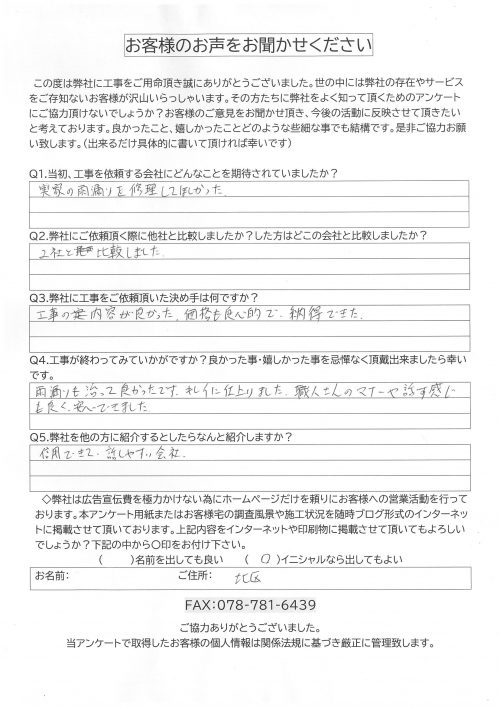 お客様のお声をお聞かせください
この度は弊社に工事をご用命頂き誠にありがとうございました。世の中には弊社の存在やサービス
をご存知ないお客様が沢山いらっしゃいます。その方たちに弊社をよく知って頂くためのアンケート
にご協力頂けないでしょうか？お客様のご意見をお聞かせ頂き、今後の活動に反映させて頂きたい
と考えております。良かったこと、嬉しかったことどのような些細な事でも結構です。是非ご協力お願
い致します。（出来るだけ具体的に書いて頂ければ幸いです）
Q1.当初、工事を依頼する会社にどんなことを期待されていましたか？
実家の雨漏りを修理してほしかった。
Q2.弊社にご依頼頂く際に他社と比較しましたか？した方はどこの会社と比較しましたか？
2社と比較しました。
Q3.弊社に工事をご依頼頂いた決め手は何ですか？
工事の内容が良かった。価格も良心的で、納得できた。
Q4.工事が終わってみていかがですか？良かった事・嬉しかった事を忌憚なく頂戴出来ましたら幸い
です。
雨漏りも治って良かったです。キレイに仕上りました。職人さんのマナーや話す感じ
も良く、安心できました。
Q5.弊社を他の方に紹介するとしたらなんと紹介しますか？
信用できて、話しやすい会社。
◇弊社は広告宣伝費を極力かけない為にホームページだけを頼りにお客様への営業活動を行って
おります。本アンケート用紙またはお客様宅の調査風景や施工状況を随時ブログ形式のインターネッ
トに掲載させて頂いております。上記内容をインターネットや印刷物に掲載させて頂いてもよろしい
でしょうか？下記の中から〇印をお付け下さい。
（　　）名前を出しても良い　（ ○ ）イニシャルなら出してもよい
お名前:　ご住所:　北区
FAX:078-781-6439
ご協力ありがとうございました。
当アンケートで取得したお客様の個人情報は関係法規に基づき厳正に管理致します。